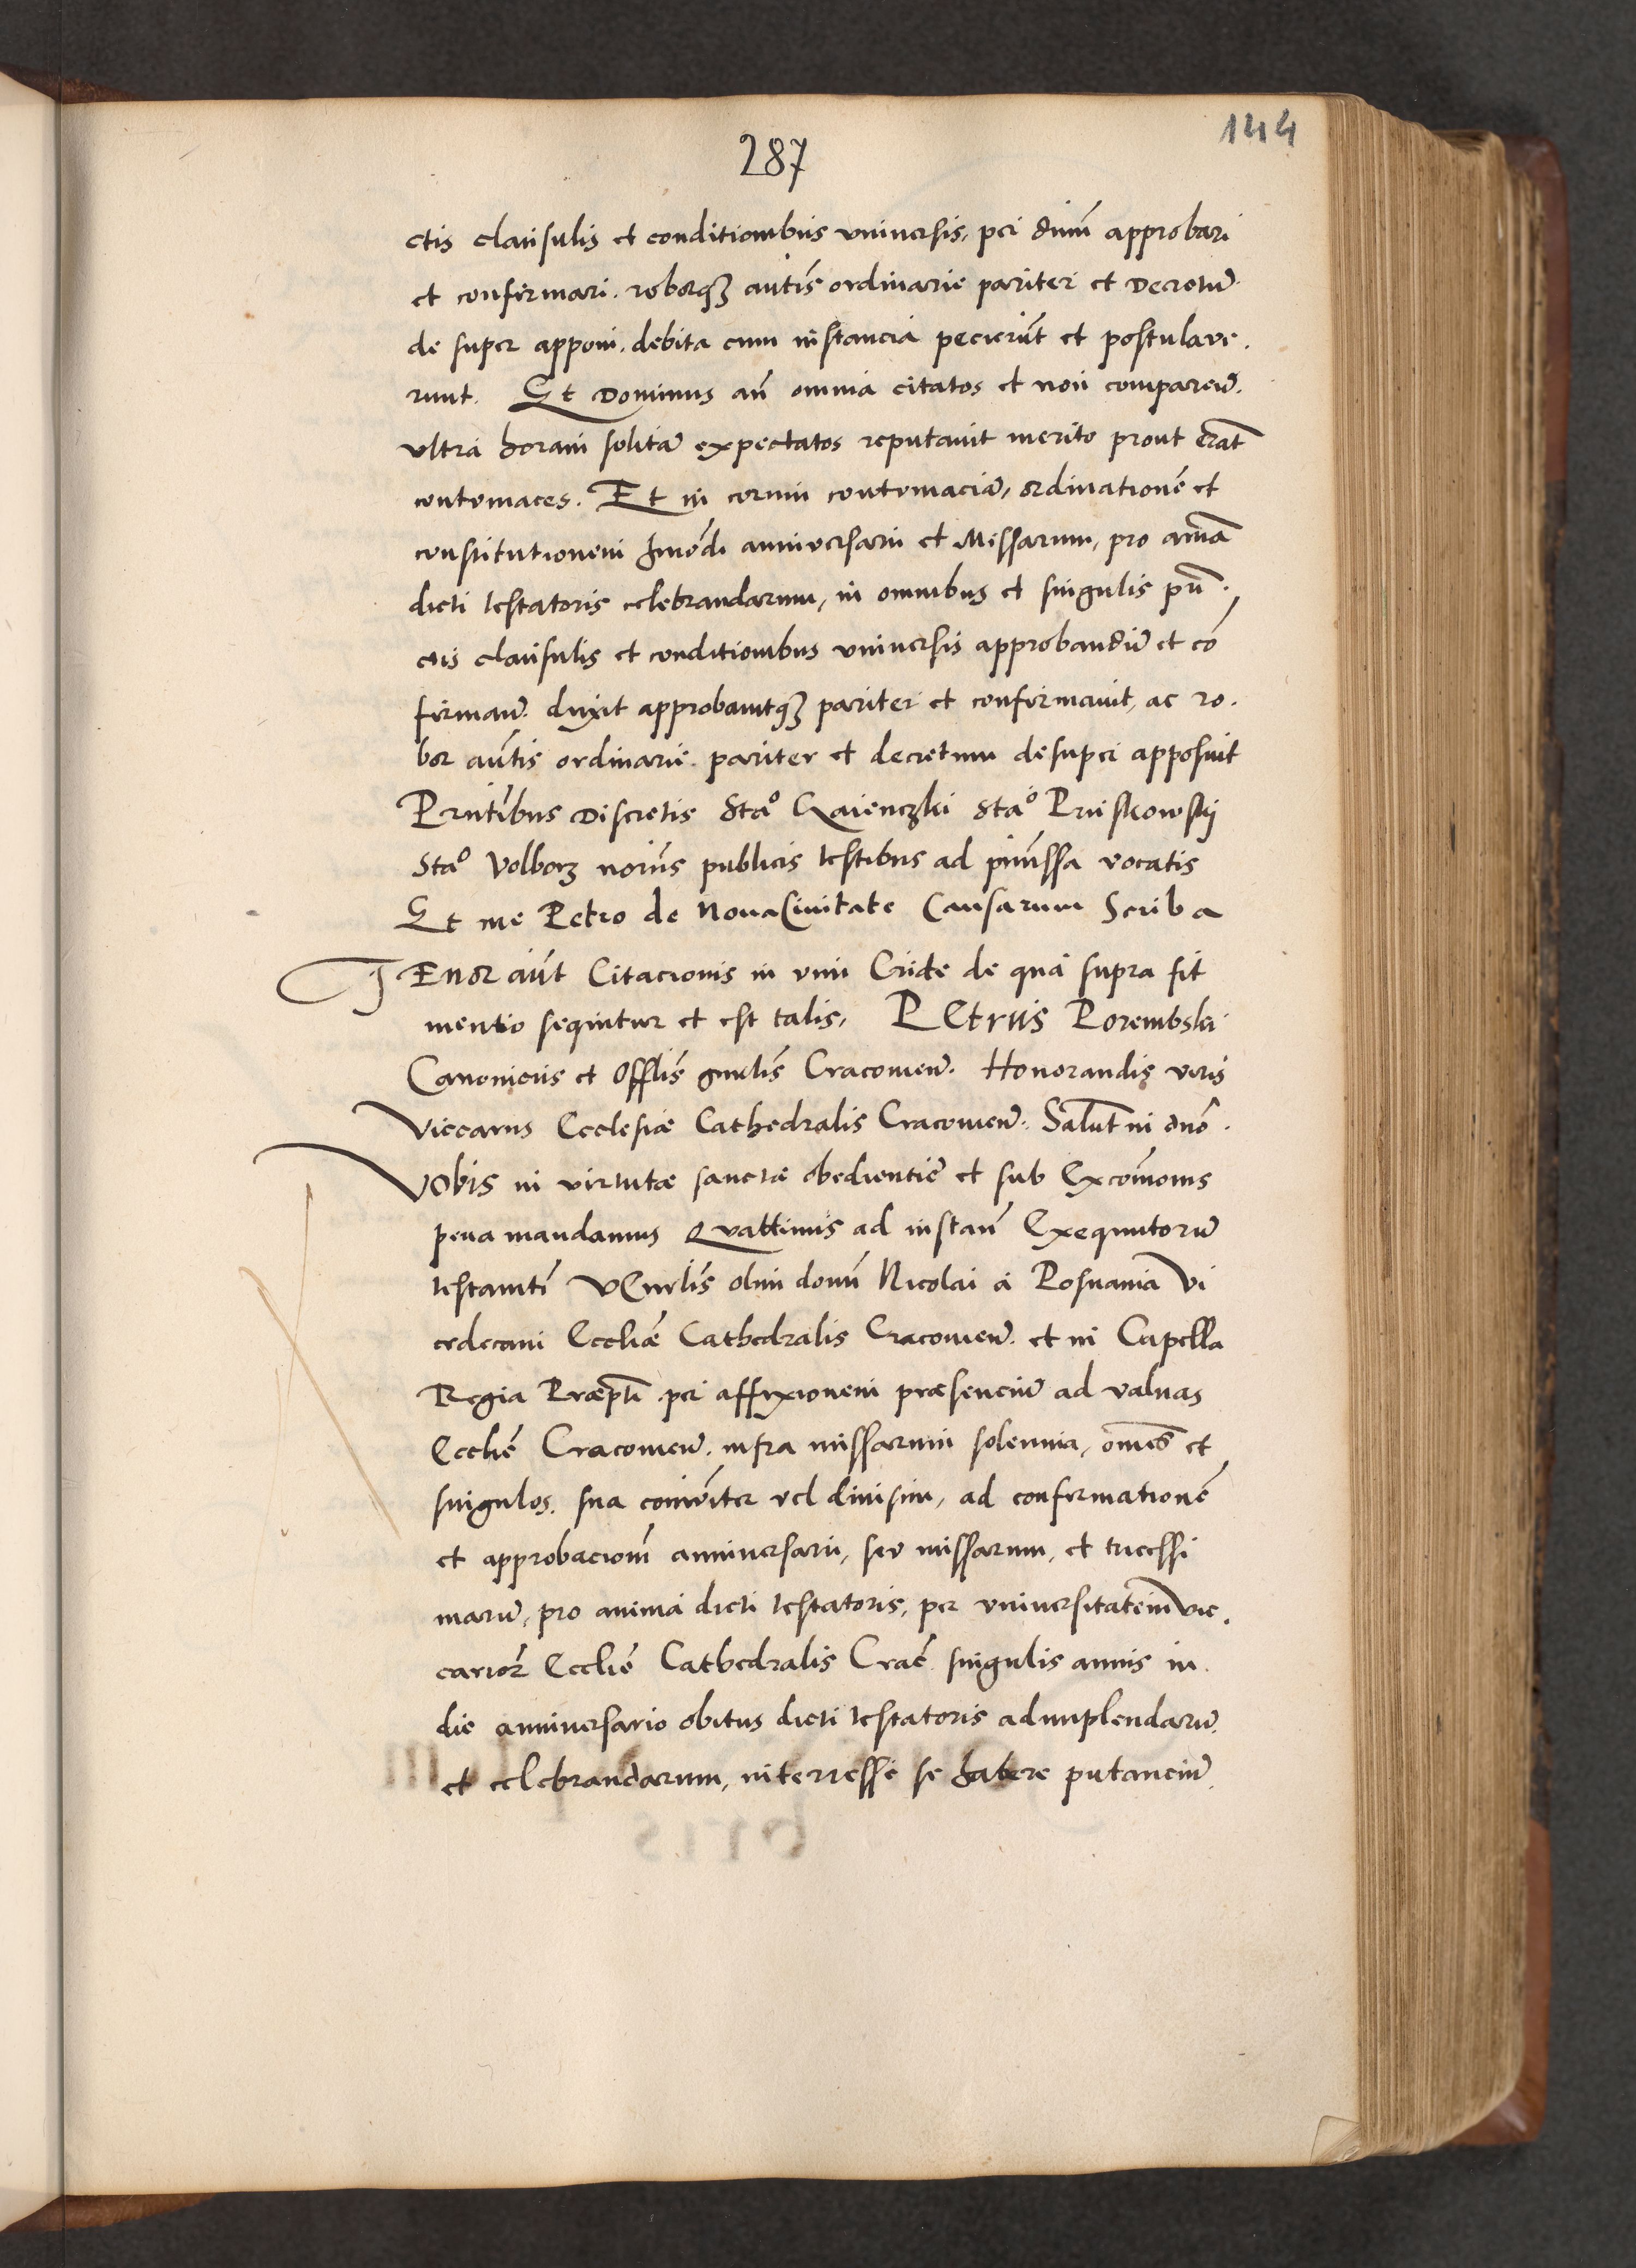 144
287
ctis clausulis et conditionibus vniuersis, per dnm̃ approbari
et confirmari. roborq́ꝫ autis̃ ordinarie pariter et Decretũ
de super apponi. debita cum instancia pecierũt et postulaue.
runt. Et Dominus añ omnia citatos et non comparen̄.
vltra horam solitã expectatos reputauit merito prout erãt
contumaces. Et in eorum contumaciã, ordinationẽ et
constitutionem hmõdi anniuersarii et Missarum, pro aĩma
dicti testatoris celebrandarum, in omnibus et singulis pũ.
ctis clausulis et conditionibus vniuersis approbandũ et cõ
firman̄. duxit approbauitq́ꝫ pariter et confirmauit, ac ro.
bor aũtis ordinarie. pariter et decretum desuper apposuit
Prñtibus Discretis Stãº Staº
Stãº Volborz nor̃us publicis testibus ad pm̃issa vocatis
Et me Petro de NouaCiuitate Causarum Scriba
TEnor aũt Citacionis in vim Cride de qua supra fit
mentio sequitur et est talis, PEtrus Porembski
Canonicus et Offlis̃ gñrlis̃ Cracouien̄. Honorandis viris
Viccariis Ecclesiæ Cathedralis Cracouien̄. Salutm̃ in dnõ.
Vobis in virtute sanctæ obedientiẽ et sub Excom̃onis
pena mandamus Quattinus ad instañ Exequutorũ
testamti VEnrlis̃ olim domĩ Nicolai a Posnania Vi
cedecani Eccliæ Cathedralis Cracouien̄. et in Capella
Regia Præpti per affixionem præsenciũ ad valuas
Eccliẽ Cracouien̄. infra missarum solennia, omẽs et
singulos. sua com̃uiter vel diuisim, ad confirmationẽ
et approbacionm̃ anniuersarii, seu missarum, et tricessi
marũ, pro anima dicti testatoris, per vniuersitatem vic.
carioꝝ Eccliẽ Cathedralis Craĉ. singulis annis in.
die anniuersario obitus dicti testatoris adimplendarũ.
et celebrandarum, interresse se habere putanciũ.